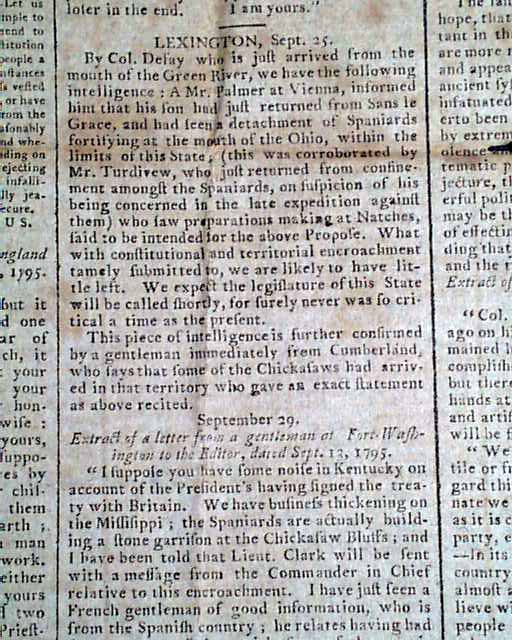 Let us
mple to
ſend to
ſtitution
people a
inſtances
s veſted
, or have
rom the
aſonably
nd whe-
nding on
rejecting
infalli-
lly jea-
ecure.
U S.
ngland
, 1795.
but it
d one
ar of
ch, it
your
your
hon-
wiſe :
yours,
ſuppo-
es by
chiſ-
them
arth ;
man
work.
either
yours
f two
Prieſt-
loſer in the end. I am yours."
LEXINGTON, Sept. 25.
By Col. Deſay who is juſt arrived from the
mouth of the Green River, we have the following
intelligence : A Mr. Palmer at Vienna, informed
him that his ſon had juſt returned from Sans le
Grace, and had ſeen a detachment of Spaniards
fortifying at the mouth of the Ohio, within the
limits of this State, (this was corroborated by
Mr. Turdivew, who juſt returned from confine-
ment amongſt the Spaniards, on ſuſpicion of his
being concerned in the late expedition againſt
them) who ſaw preparations making at Natches,
ſaid to be intended for the above Propoſe. What
with conſtitutional and territorial encroachment
tamely ſubmitted to, we are likely to have lit-
tle left. We expect the legiſlature of this State
will be called ſhortly, for ſurely never was ſo cri-
tical a time as the preſent.
This piece of intelligence is further confirmed
by a gentleman immediately from Cumberland,
who ſays that ſome of the Chickaſaws had arriv-
ed in that territory who gave an exact ſtatement
as above recited.
September 29.
Extract of a letter from a gentleman at Fort Waſh-
ington to the Editor, dated Sept. 12, 1795.
"I ſuppoſe you have ſome noiſe in Kentucky on
account of the Preſident's having ſigned the trea-
ty with Britain. We have buſineſs thickening on
the Miſſiſippi ; the Spaniards are actually build-
ing a ſtone garriſon at the Chickaſaw Bluffs ; and
I have been told that Lieut. Clark will be ſent
with a meſſage from the Commander in Chief
relative to this encroachment. I have juſt ſeen a
French gentleman of good information, who is
from the Spaniſh country ; he relates having had
hope, that
tant in th
are more
and appea
ancient ſyſ
infatuated
erto been
by extrem
olence
tematic p
jecture, th
erful polit
may be th
of effectin
ding that
and the
Extract of
"Col.
ago on hi
mained h
compliſh
but there
hands at
and artifi
will be ſ
"We
tile or fr
gard this
nate we
as it is c
party, e
—In its
country
almoſt a
lieve wi
people